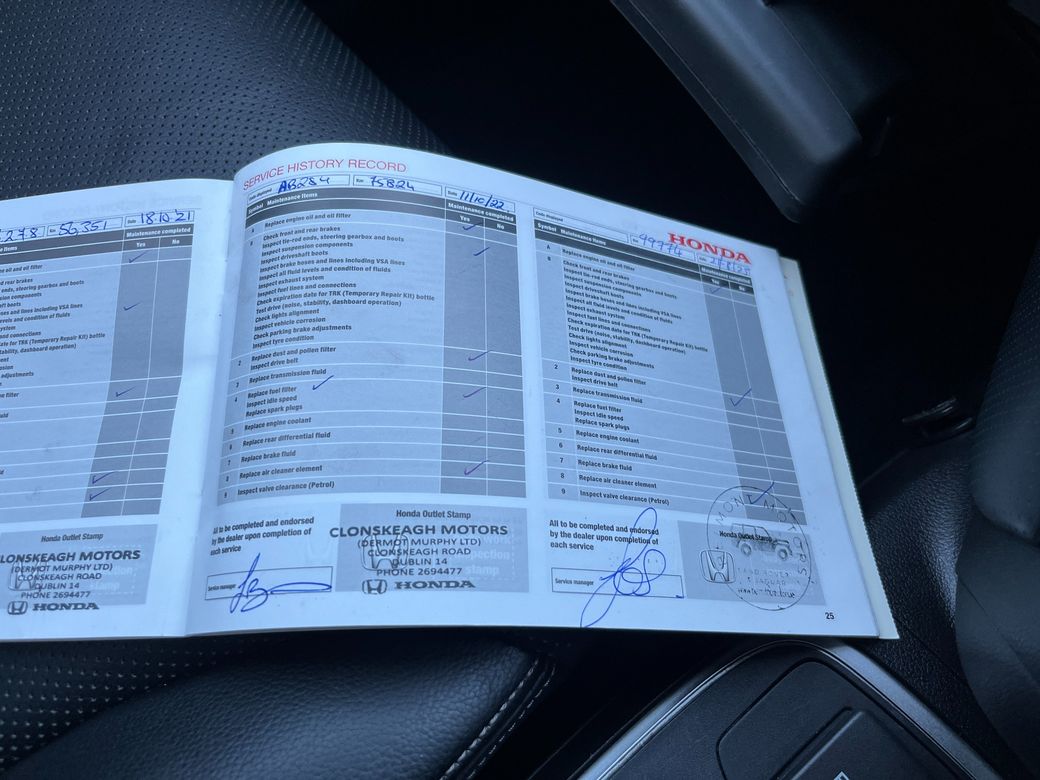 278 Km 56,351 Date 18.10.21
Items Maintenance completed
Yes No
oil and oil filter
rear brakes
ends, steering gearbox and boots
components
boots
hoses and lines including VSA lines
levels and condition of fluids
system
and connections
date for TRK (Temporary Repair Kit) bottle
stability, dashboard operation)
adjustments
filter
fluid
Honda Outlet Stamp
CLONSKEAGH MOTORS
(DERMOT MURPHY LTD)
CLONSKEAGH ROAD
DUBLIN 14
PHONE 2694477
HONDA
SERVICE HISTORY RECORD
Code displayed AB284 Km 75824 Date 11/10/22
Symbol Maintenance items Maintenance completed
Yes No
A Replace engine oil and oil filter
B Check front and rear brakes
Inspect tie-rod ends, steering gearbox and boots
Inspect suspension components
Inspect driveshaft boots
Inspect brake hoses and lines including VSA lines
Inspect all fluid levels and condition of fluids
Inspect exhaust system
Inspect fuel lines and connections
Check expiration date for TRK (Temporary Repair Kit) bottle
Test drive (noise, stability, dashboard operation)
Check lights alignment
Inspect vehicle corrosion
Check parking brake adjustments
Inspect tyre condition
2 Replace dust and pollen filter
Inspect drive belt
3 Replace transmission fluid
4 Replace fuel filter
Inspect idle speed
Replace spark plugs
5 Replace engine coolant
6 Replace rear differential fluid
7 Replace brake fluid
8 Replace air cleaner element
9 Inspect valve clearance (Petrol)
All to be completed and endorsed
by the dealer upon completion of
each service
Service manager
Honda Outlet Stamp
CLONSKEAGH MOTORS
(DERMOT MURPHY LTD)
CLONSKEAGH ROAD
DUBLIN 14
PHONE 2694477
HONDA
HONDA
Code displayed Km 99774 Date
Symbol Maintenance items Maintenance completed
Yes No
A Replace engine oil and oil filter
B Check front and rear brakes
Inspect tie-rod ends, steering gearbox and boots
Inspect suspension components
Inspect driveshaft boots
Inspect brake hoses and lines including VSA lines
Inspect all fluid levels and condition of fluids
Inspect exhaust system
Inspect fuel lines and connections
Check expiration date for TRK (Temporary Repair Kit) bottle
Test drive (noise, stability, dashboard operation)
Check lights alignment
Inspect vehicle corrosion
Check parking brake adjustments
Inspect tyre condition
2 Replace dust and pollen filter
Inspect drive belt
3 Replace transmission fluid
4 Replace fuel filter
Inspect idle speed
Replace spark plugs
5 Replace engine coolant
6 Replace rear differential fluid
7 Replace brake fluid
8 Replace air cleaner element
9 Inspect valve clearance (Petrol)
All to be completed and endorsed
by the dealer upon completion of
each service
Service manager
Honda Outlet Stamp
LAND ROVER
JAGUAR
25